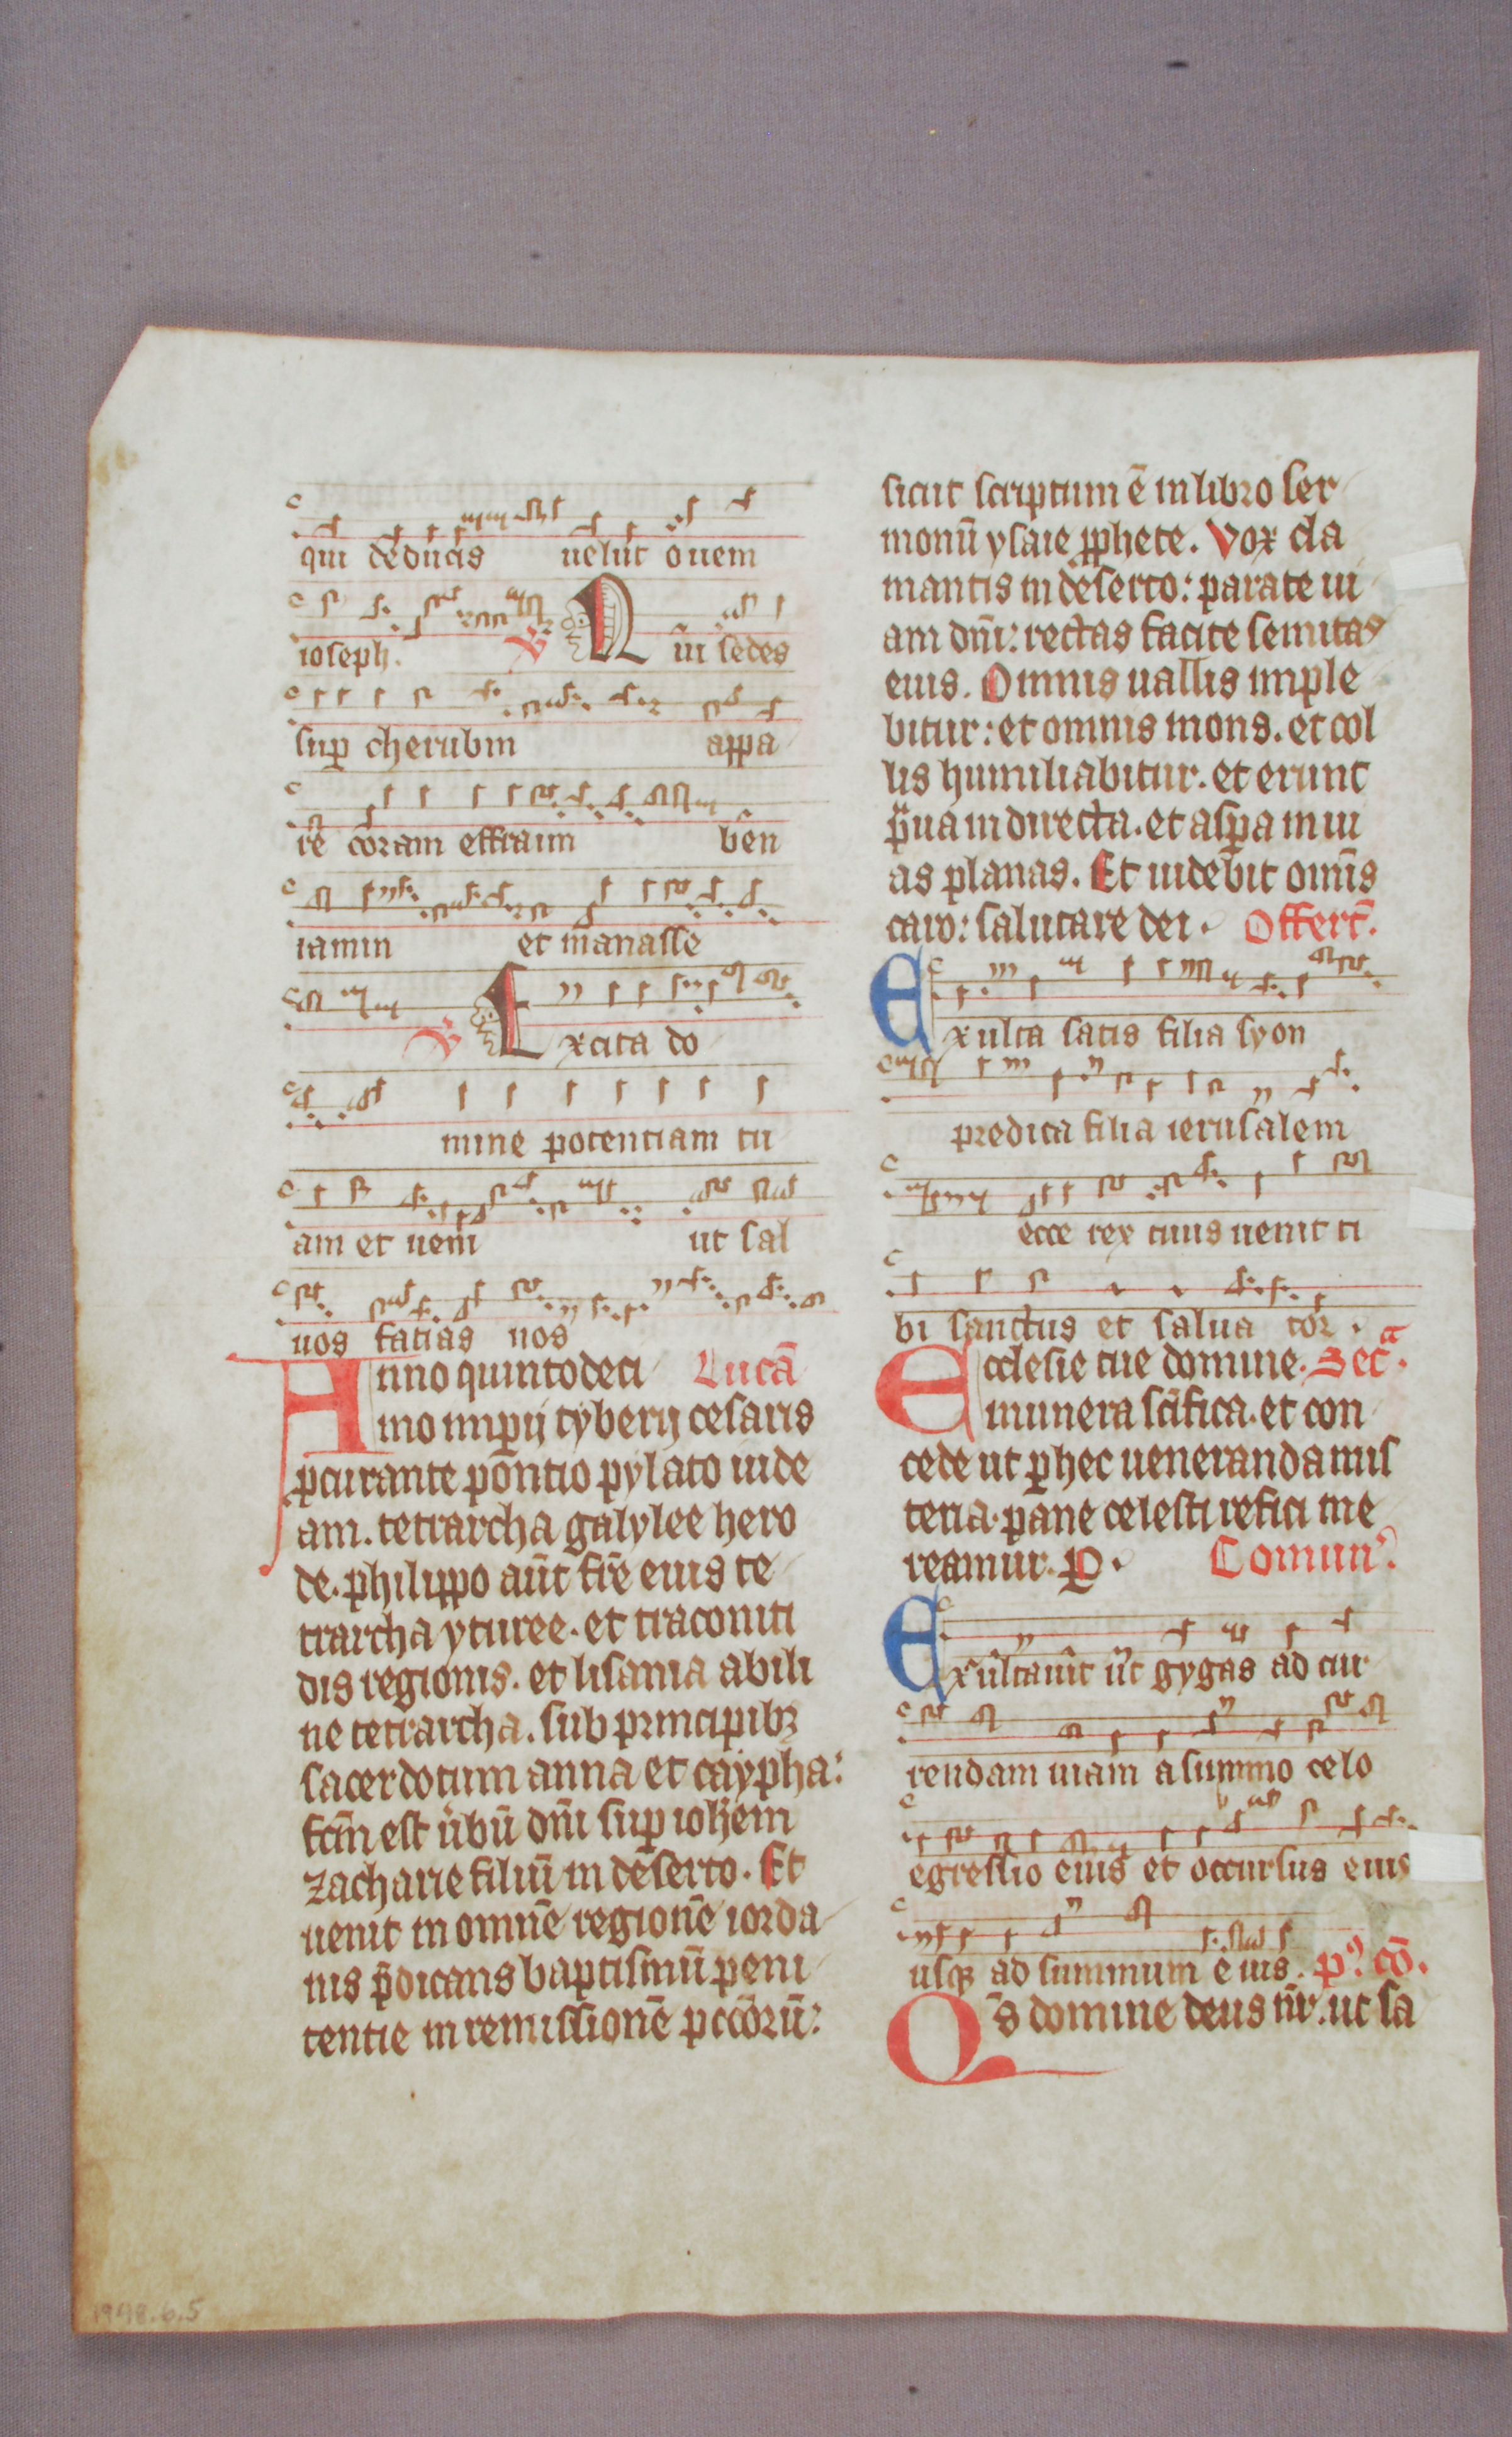 qui deducis uelut ouem
ioseph. V Qui sedes
sup cherubin appa
re coram effraim ben
iamin et manasse
V Excita do
mine potentiam tu
am et ueni ut sal
uos facias nos
Anno quintodeci Lucā
mo impij tyberij cesaris
pcurante pontio pylato iude
am. tetrarcha galylee hero
de. philippo aūt fr̄e eius te
trarcha yturee. et traconiti
dis regionis. et lisania abili
ne tetrarcha. sub principibꝫ
sacerdotum anna et caypha:
fc̄m est ūbū dn̄i sup ioh̄em
zacharie filiū in deserto. Et
uenit in omnē regionē iorda
nis p̄dicans baptismū peni
tentie in remissionē pcc̄orū:
sicut scriptum ē in libro ser
monū ysaie ꝓphete. Vox cla
mantis in deserto: parate ui
am dn̄i: rectas facite semitas
eius. Omnis uallis imple
bitur: et omnis mons. et col
lis humiliabitur. et erunt
p̄ua in directa. et aspa in ui
as planas. Et uidebit omīs
caro: salutare dei. Offert̄.
Exulta satis filia syon
predica filia ierusalem
ecce rex tuus uenit ti
bi sanctus et salua tor.
Ecclesie tue domine. Sec̄ᵃ.
munera sc̄ifica. et con
cede ut p hec ueneranda mis
teria. pane celesti refici me
reamur. P. Comun̄.
Exultauit ūt gygas ad cur
rendam uiam a summo celo
egressio eius et occursus eius
usqꝫ ad summum eius. p⁹. cō.
Qs̄ domine deus nr̄. ut sa
1948.6.5